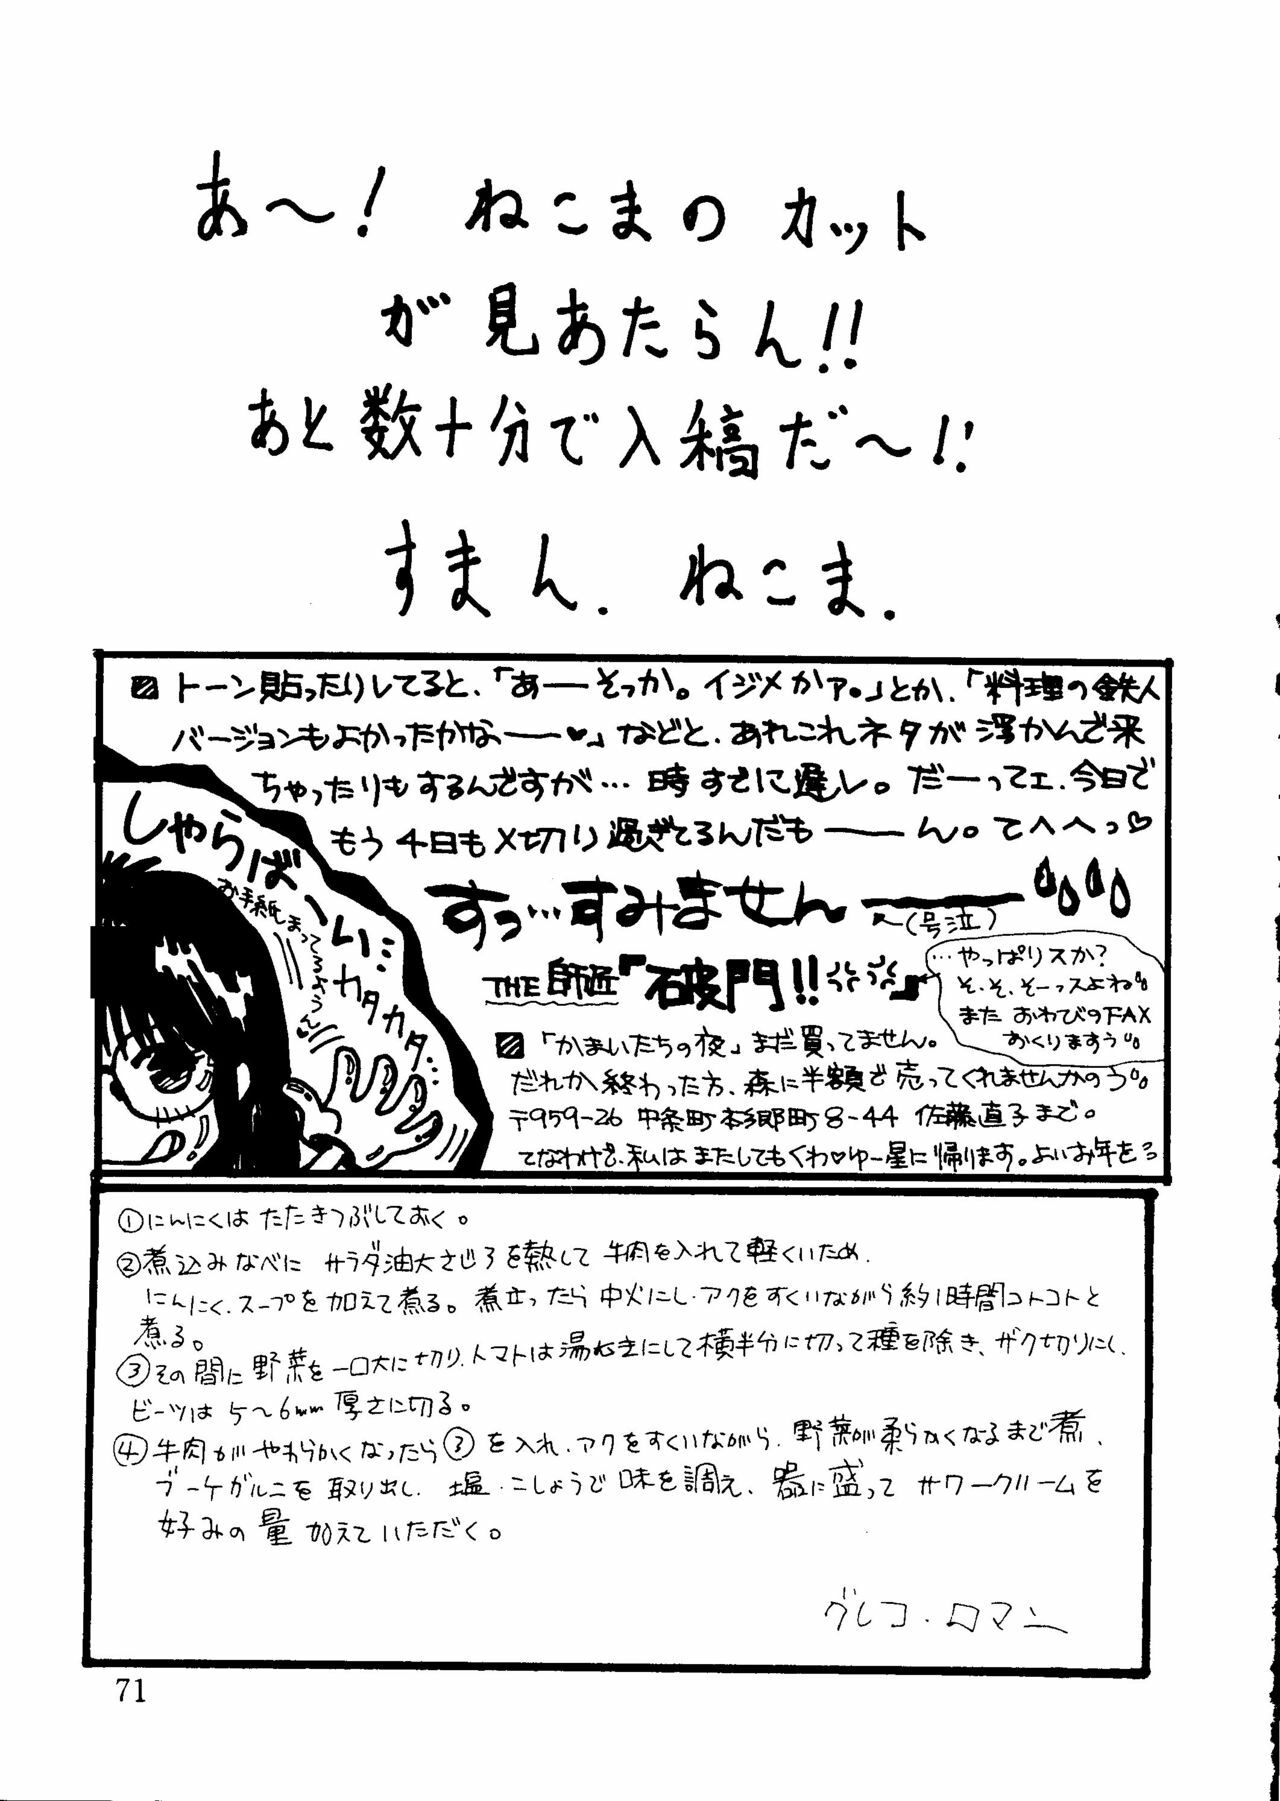 あ〜! ねこまの カット
が見あたらん!!
あと数十分で入稿だ〜!!
すまん. ねこま.
トーン貼ったりしてると、「あーそっか。イジメかァ。」とか、「料理の鉄人
バージョンもよかったかなー♥」などと、あれこれネタが浮かんで来
ちゃったりもするんですが…時すでに遅し。だーってェ、今日で
もう4日も〆切り過ぎてるんだもーーん。てへへっ♡
すっ…すみませんーー
(号泣)
THE 師匠「破門!!」
…やっぱりスか?
そ、そ、そーっスよね
また おわびのFAX
おくりますぅ
しゃらば、
お手紙まってるよぅん
い…
カタカタ…
「かまいたちの夜」まだ買ってません。
だれか終わった方、森に半額で売ってくれませんかのぅ
〒959-26 中条町本郷町8-44 佐藤直子まで。
てなわけで、私はまたしてもくわ♡ゆー星に帰ります。よいお年を
①にんにくは たたきつぶしておく。
②煮込みなべに サラダ油大さじ3を熱して 牛肉を入れて軽くいため、
にんにく、スープを加えて煮る。煮立ったら中火にし、アクをすくいながら約1時間コトコトと
煮る。
③その間に野菜を一口大に切り、トマトは湯むきにして横半分に切って種を除き、ザク切りにし、
ビーツは5〜6mm厚さに切る。
④牛肉がやわらかくなったら③を入れ、アクをすくいながら、野菜が柔らかくなるまで煮、
ブーケガルニを取り出し、塩・こしょうで味を調え、器に盛って サワークリームを
好みの量 加えていただく。
グレコ・ロマン
71